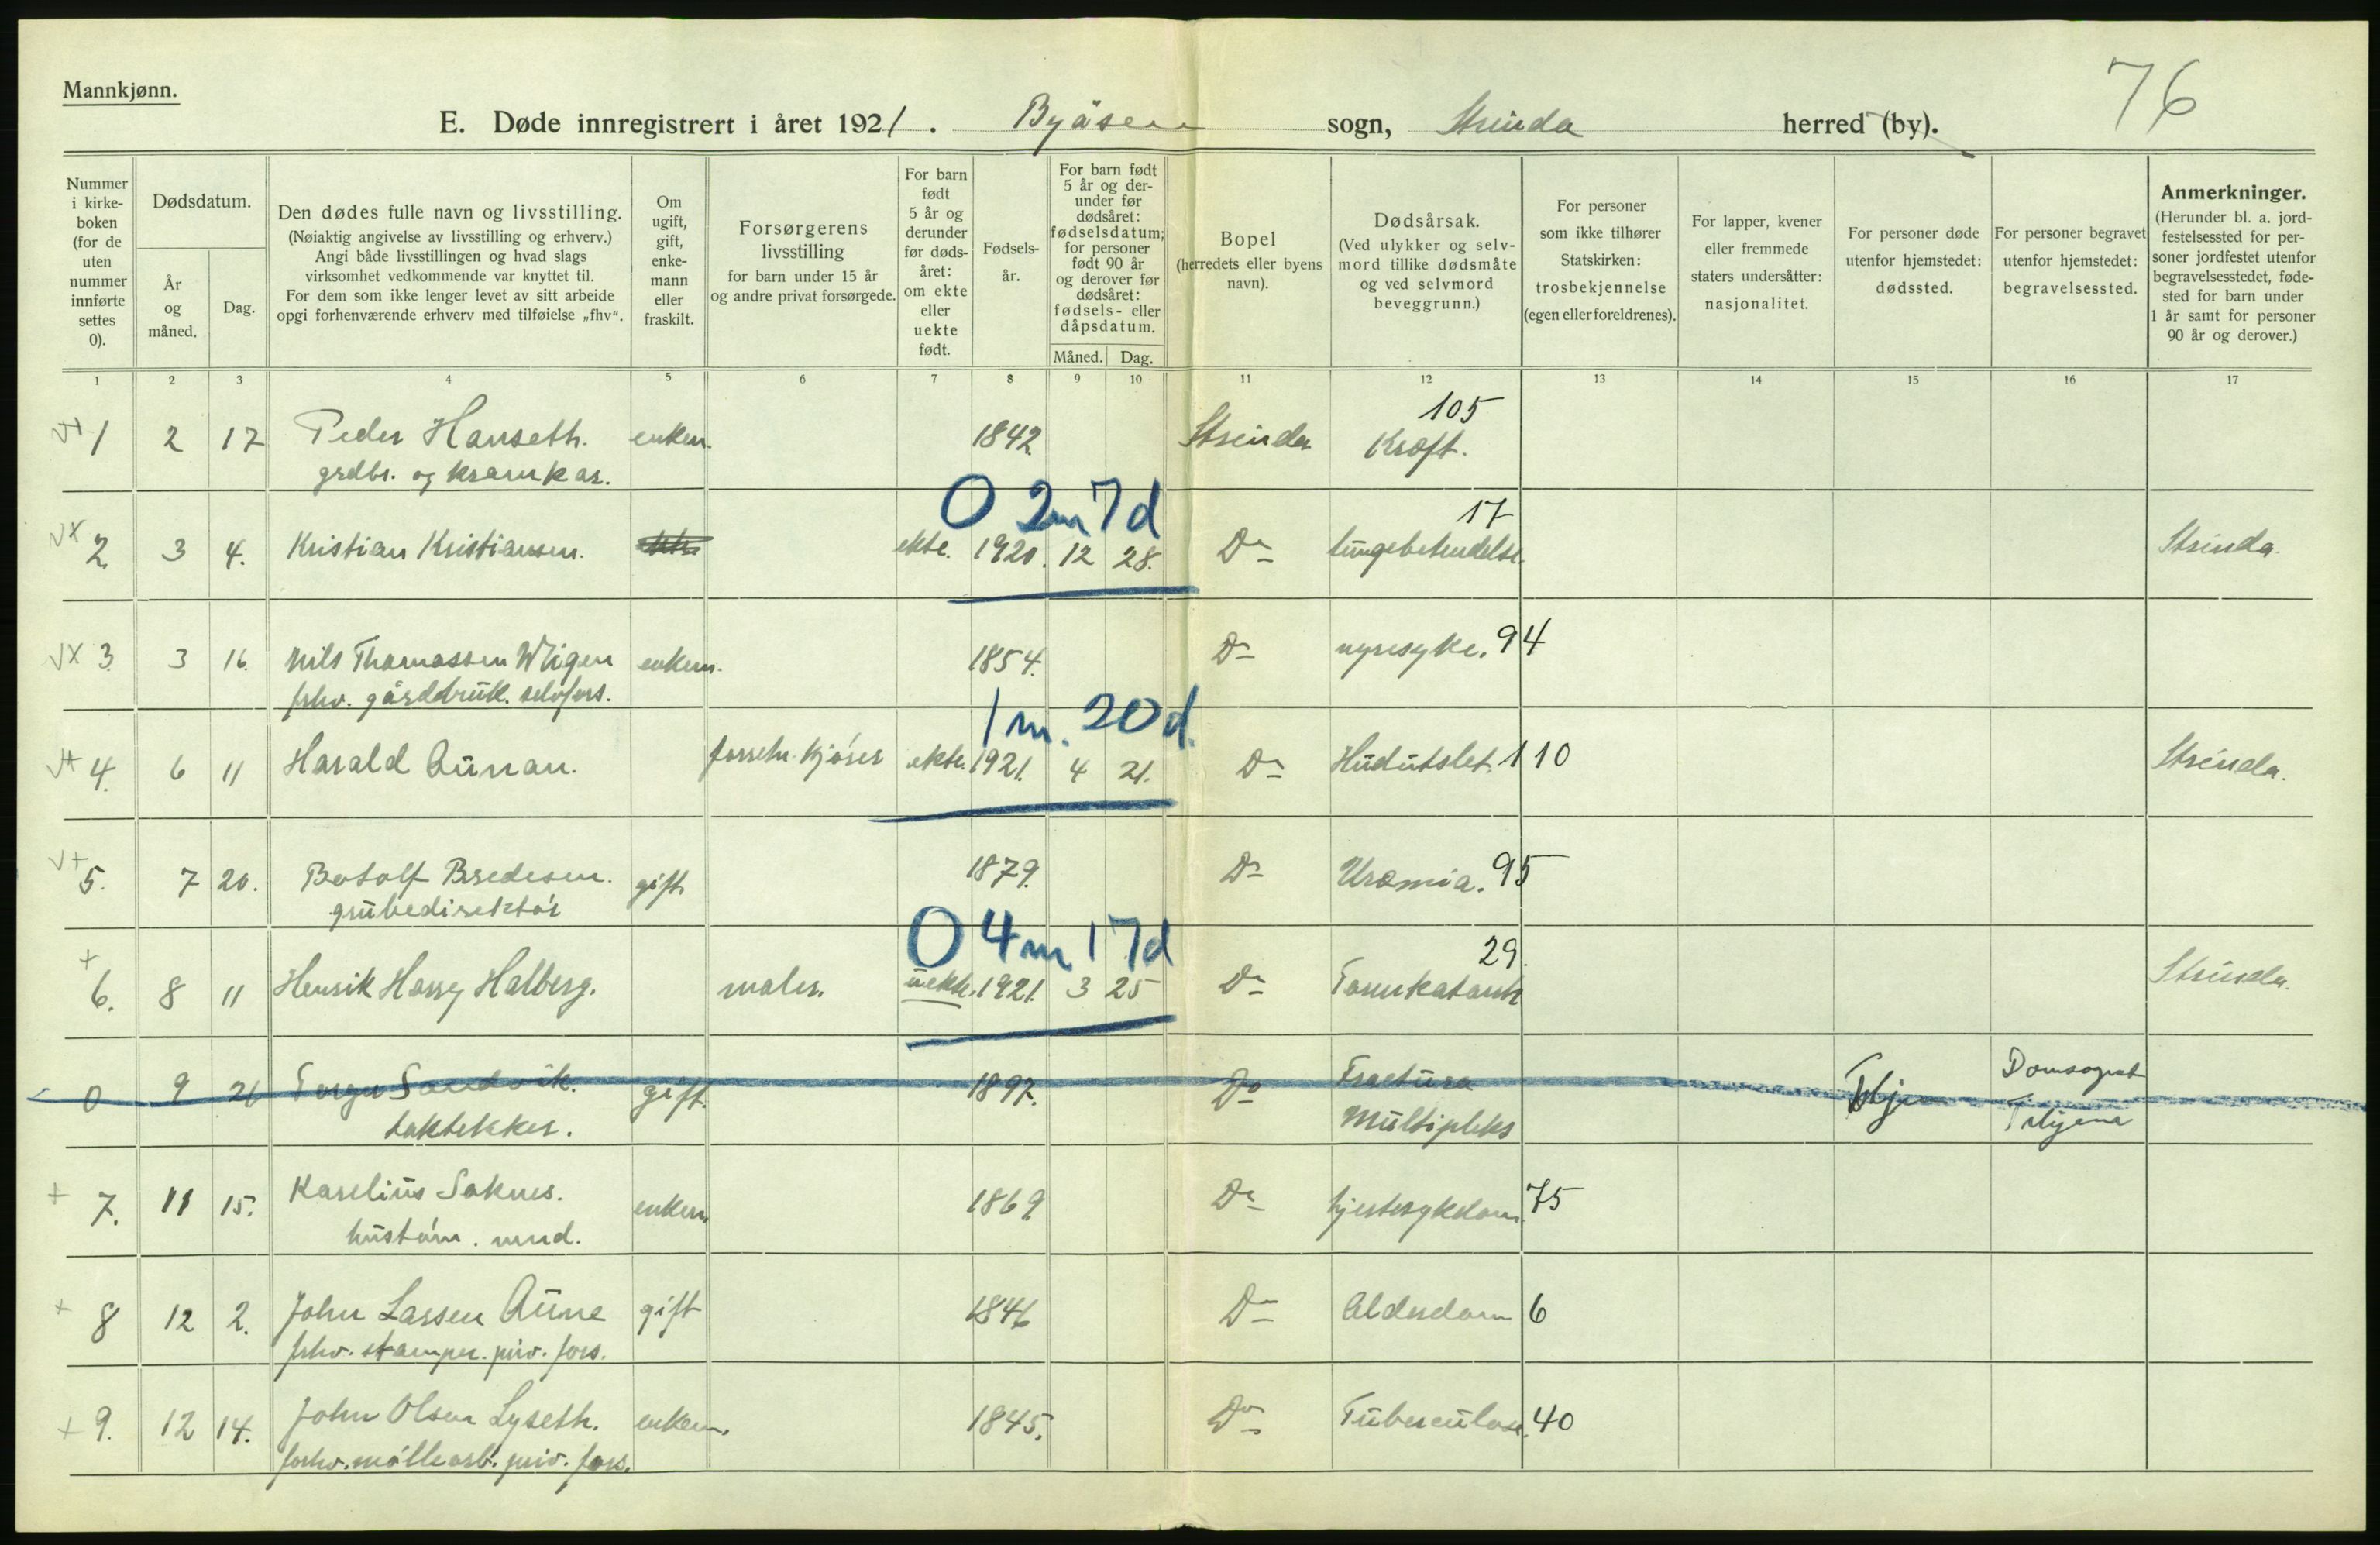 76
Mannkjønn.
E. Døde innregistrert i året 1921. Byåsen sogn, Strinda herred (by).
Nummer i kirke-boken (for de uten nummer innførte settes 0).
Dødsdatum.
År og måned.
Dag.
Den dødes fulle navn og livsstilling.
(Nøiaktig angivelse av livsstilling og erhverv.)
Angi både livsstillingen og hvad slags
virksomhet vedkommende var knyttet til.
For dem som ikke lenger levet av sitt arbeide
opgi forhenværende erhverv med tilføielse „fhv“.
Om ugift, gift, enke-mann eller fraskilt.
Forsørgerens livsstilling
for barn under 15 år
og andre privat forsørgede.
For barn født 5 år og derunder før døds-året: om ekte eller uekte født.
Fødsels-år.
For barn født 5 år og der-under før dødsåret: fødselsdatum; for personer født 90 år og derover før dødsåret: fødsels- eller dåpsdatum.
Måned.
Dag.
Bopel
(herredets eller byens navn).
Dødsårsak.
(Ved ulykker og selv-mord tillike dødsmåte og ved selvmord beveggrunn.)
For personer som ikke tilhører Statskirken: trosbekjennelse (egen eller foreldrenes).
For lapper, kvener eller fremmede staters undersåtter: nasjonalitet.
For personer døde utenfor hjemstedet: dødssted.
For personer begravet utenfor hjemstedet: begravelsessted.
Anmerkninger.
(Herunder bl. a. jord-festelsessted for per-soner jordfestet utenfor begravelsesstedet, føde-sted for barn under 1 år samt for personer 90 år og derover.)
1 2 3 4 5 6 7 8 9 10 11 12 13 14 15 16 17
105
1 2 17 Peder Hanseth. enkem. 1842 Strinda Kræft.
grdbr. og kramkar.
0 2m 7d 17
2 3 4. Kristian Kristiansen. ekte. 1920. 12 28. Do lungebetendelse. Strinda.
3 3 16. Nils Thomassen Wigen enkem. 1854. Do nyresyke. 94
frhv. gårdbruk. selvfors.
1m. 20d.
4. 6 11 Harald Aunan. ekte. 1921. 4 21. Do Hudutslet. 110 Strinda.
5. 7 20. Botolf Bredesen. gift 1879. Do Uræmia. 95
grubedirektør
0 4m 17d 29.
6. 8 11 Henrik Harry Halberg. maler. uekte. 1921. 3 25 Do Tarmkatarrh Strinda.
0 9 21 Torger Sandvik. gift. 1897. Do Fractura Tr.hjem Domsognet
taktekker. Multipleks Tr.hjem
7. 11 15. Karelius Saknes. enkem. 1869. Do hjertesykdom. 75
hustøm. mnd.
8 12 2. John Larsen Aune gift 1846 Do Alderdom 6
frhv. stamper. priv. fors.
9. 12 14. John Olsen Lyseth. enkem. 1845. Do Tuberculose. 40
forhv. møllearb. priv. fors.